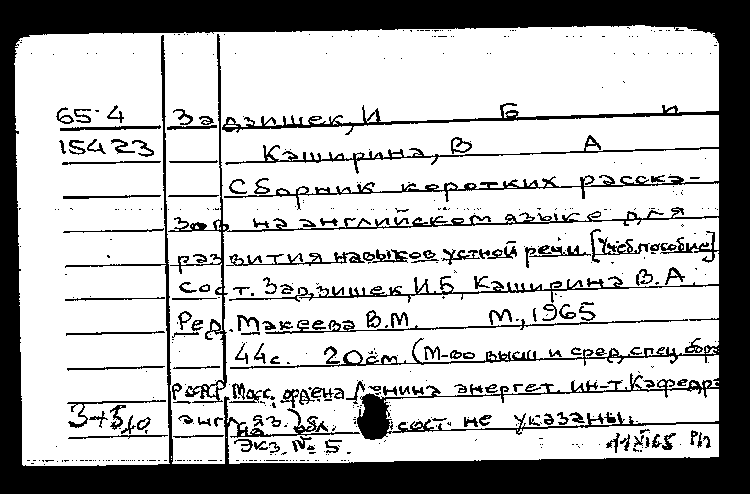 65-4 Задзишек, И Б и
15423 Каширина, В А
Сборник коротких расска-
зов на английском языке для
развития навыков устной речи. [Учеб. пособие]
Сост. Задзишек, И.Б, Каширина В.А.
Ред. Макеева В.М. М., 1965
44с. 20см. (М-во высш и сред, спец. обра
РСФСР Моск. ордена Ленина энергет. ин-т. Кафедра
англ яз.) На обл. сост. не указаны.
Экз. № 5.